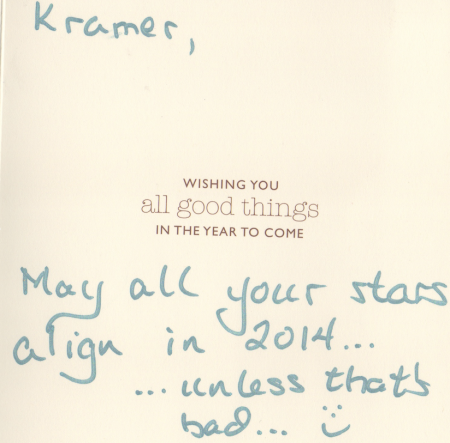 Kramer,
WISHING YOU
all good things
IN THE YEAR TO COME
May all your stars
align in 2014...
...unless that's
bad... :)